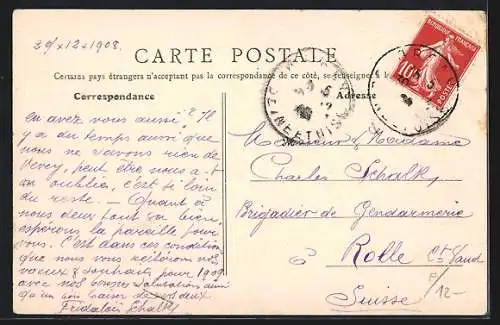 30/12-1908.
CARTE POSTALE
Certains pays étrangers n'acceptant pas la correspondance de ce côté, se renseigner à la
Correspondance
Adresse
RÉPUBLIQUE FRANÇAISE
10
POSTES
SEINE ET OISE
en avez vous aussi ? Il
y a du temps aussi que
nous ne savons rien de
Vevey, peut être nous a t
on oublié, c'est si loin
du reste. — Quant à
nous deux tout va bien,
espérons la pareille pour
vous. C'est dans ces conditions
que nous vous réitérons nos
voeux & souhaits pour 1909
avec nos bonnes salutations ainsi
qu'un bon baiser de vos deux
Fridolin Schalk
Monsieur & Madame
Charles Schalk,
Brigadier de Gendarmerie
à Rolle Ct. Vaud
Suisse
12-